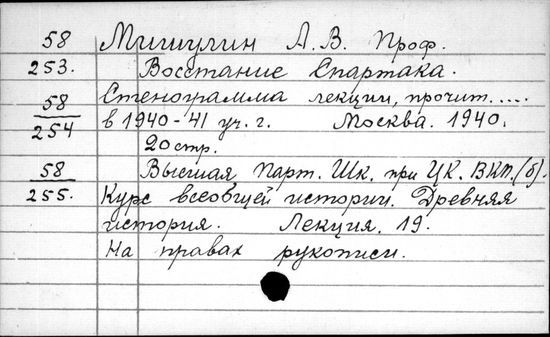 58 Мишулин А. В. Проф.
253. Восстание Спартака.
58 Стенограмма лекции, прочит.....
254 в 1940-41 уч. г. Москва. 1940.
20 стр.
58 Высшая Парт. Шк. при ЦК. ВКП.(б).
255. Курс всеобщей истории. Древняя
история. Лекция. 19.
На правах рукописи.